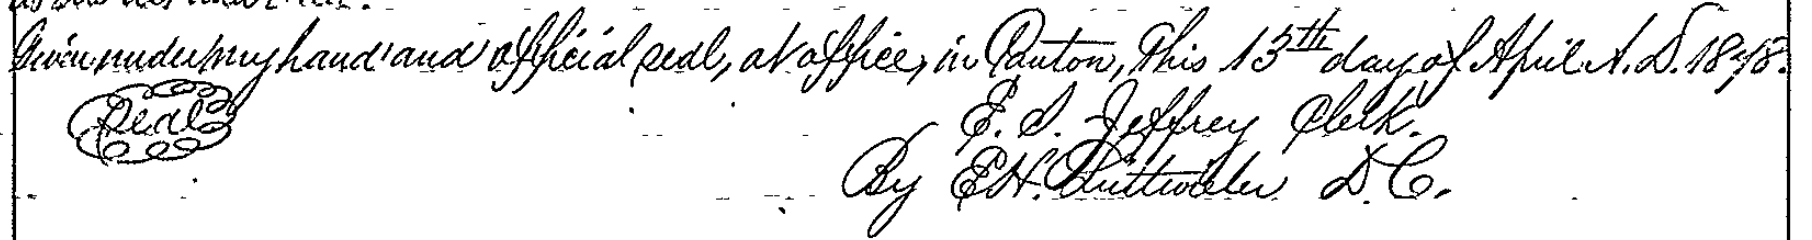 Given under my hand and official seal, at office, in Canton, this 13th day of April A. D. 1878.
Seal
E. S. Jeffrey Clerk.
By E H. D. C.